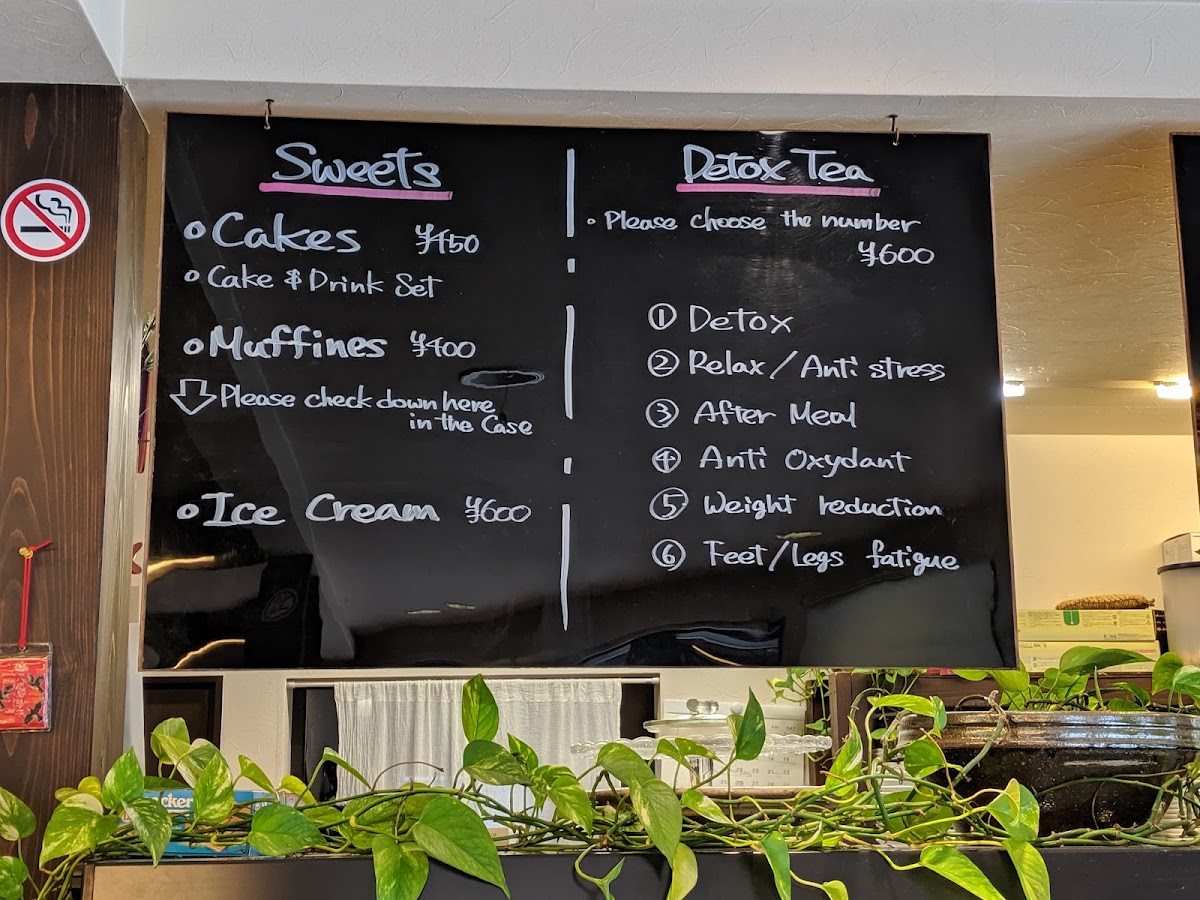 Sweets
Cakes ¥450
Cake & Drink Set
Muffines ¥400
Please check down here
in the Case
Ice Cream ¥600
Detox Tea
Please choose the number
¥600
① Detox
② Relax/Anti stress
③ After Meal
④ Anti Oxydant
⑤ Weight reduction
⑥ Feet/Legs fatigue